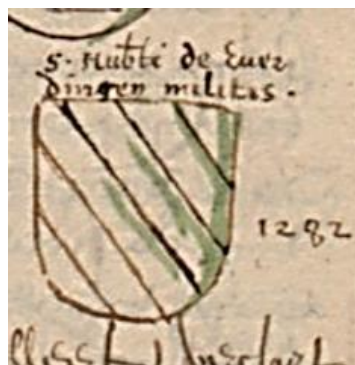 S. Hub̄ti de Euer
dingen militis.
1282